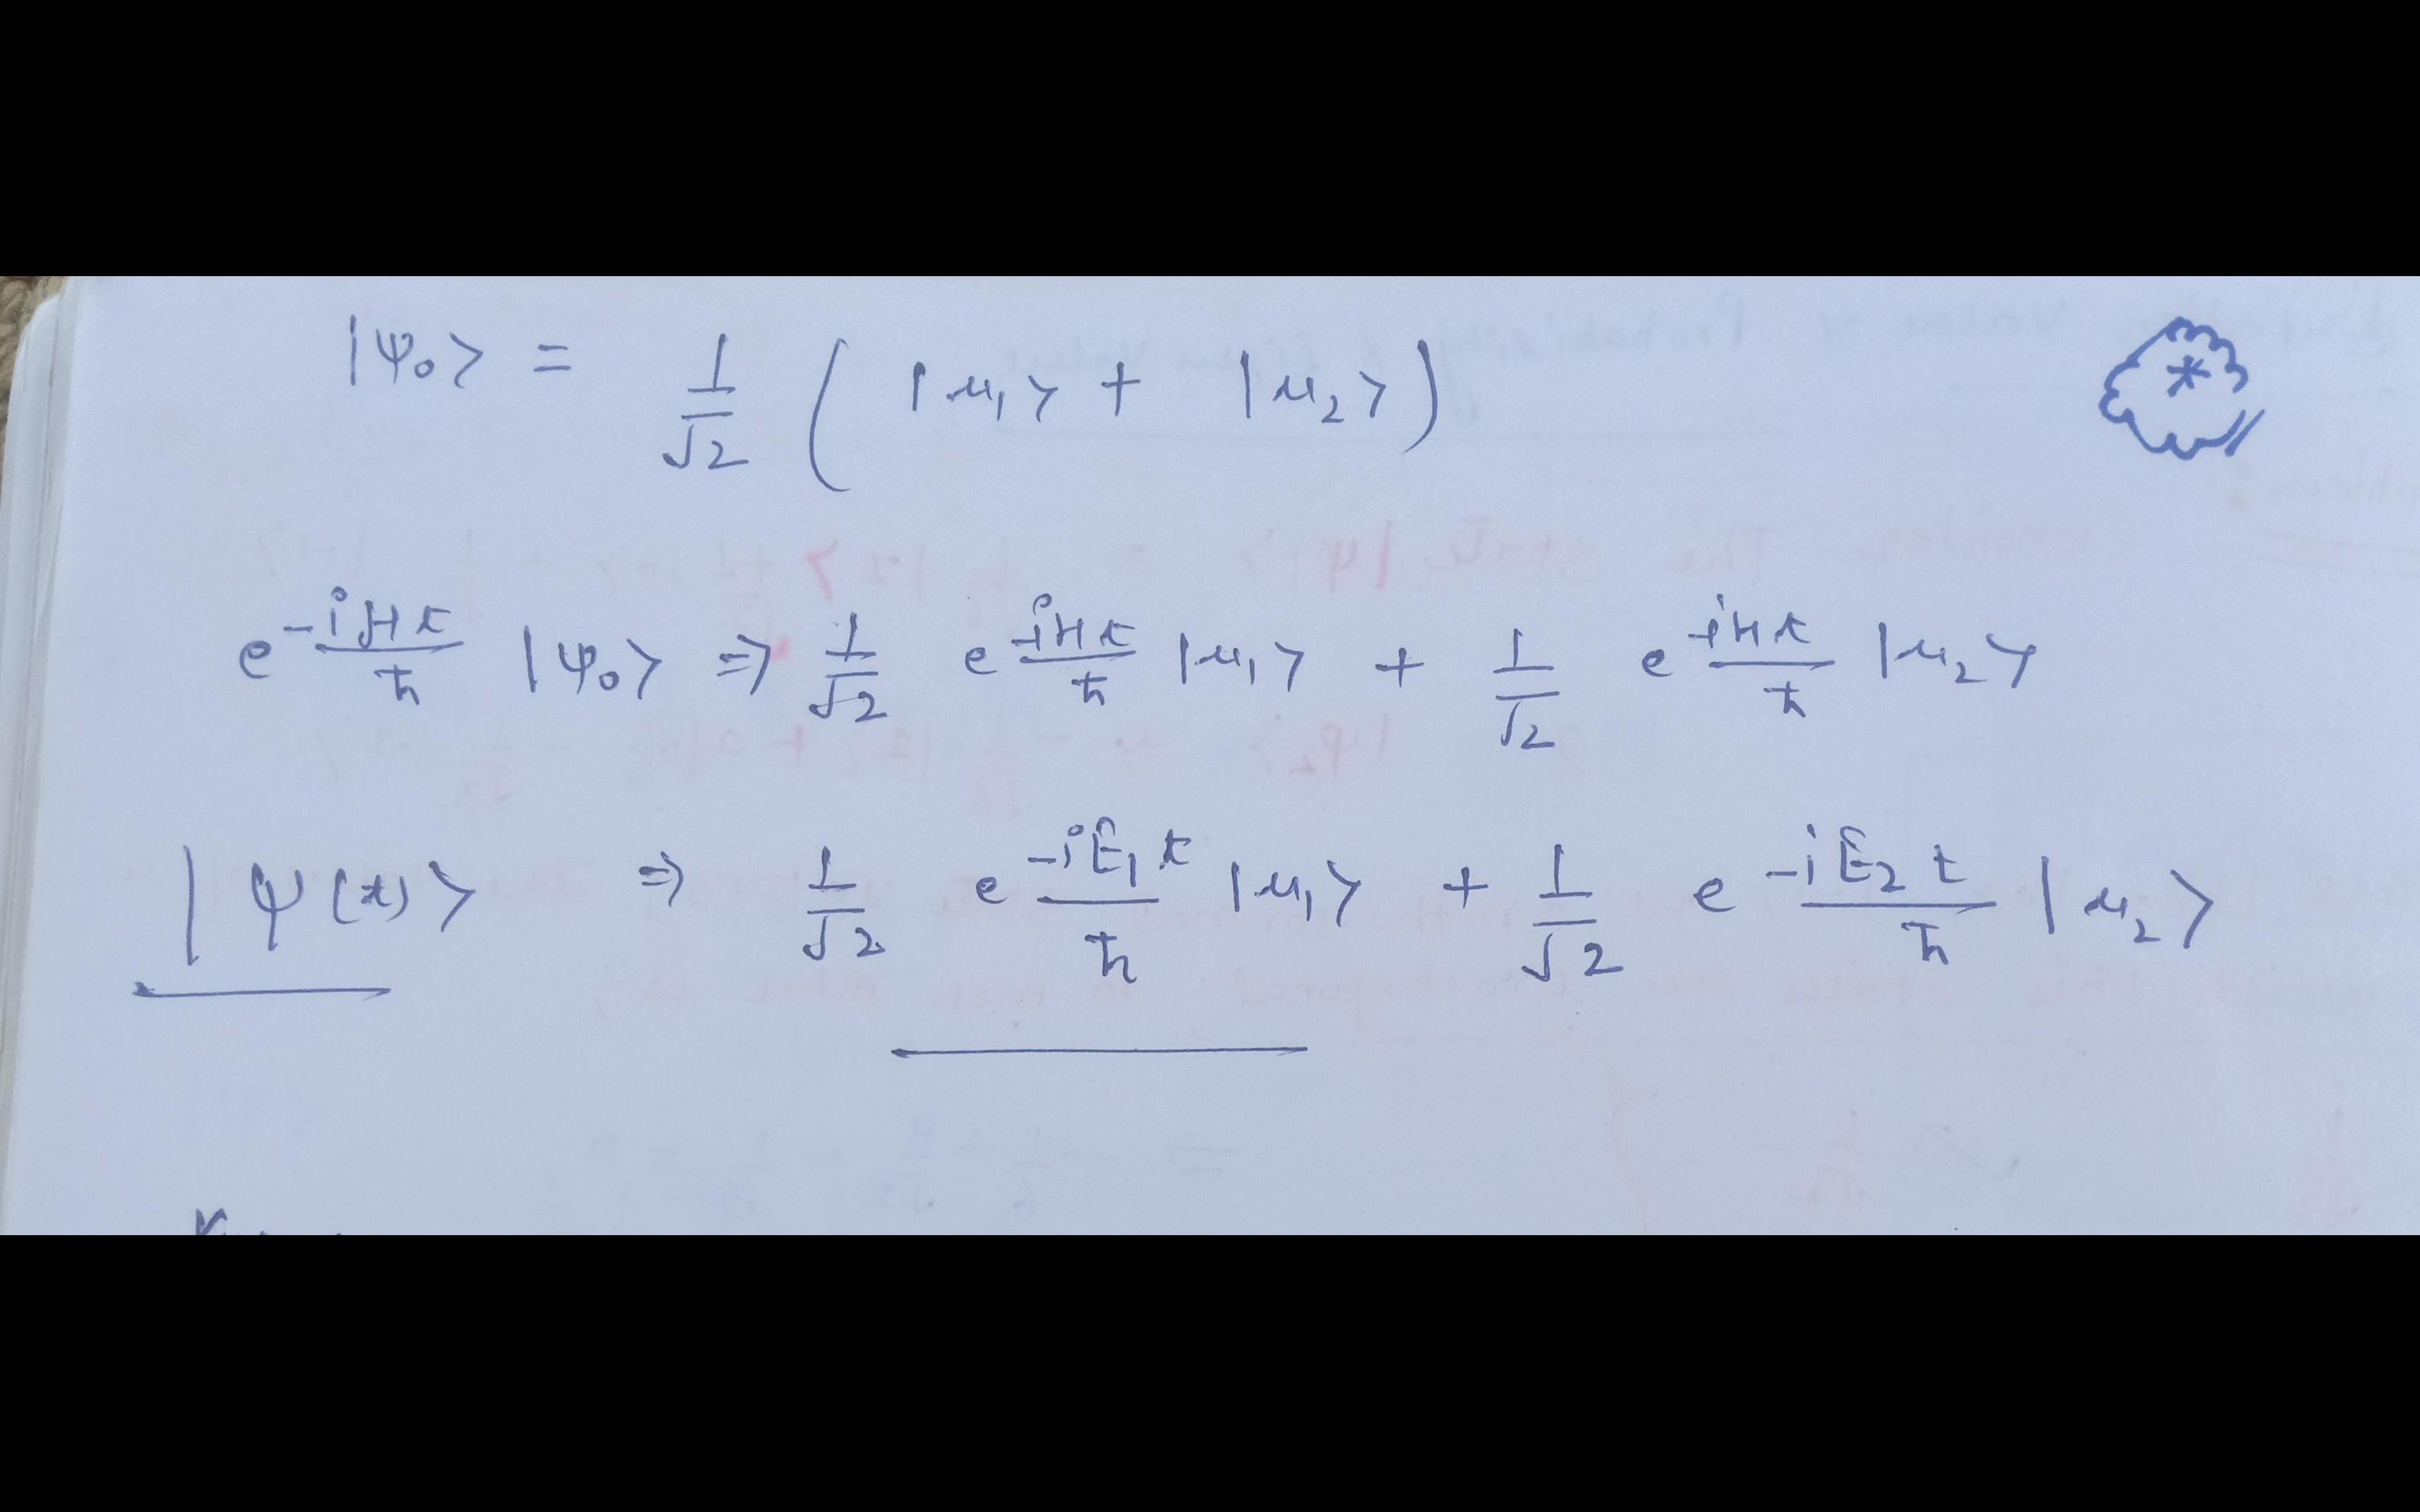 |ψ₀> = 1/√2 ( |u₁> + |u₂> ) *
e^(-iHt/ħ) |ψ₀> ⇒ 1/√2 e^(-iHt/ħ) |u₁> + 1/√2 e^(-iHt/ħ) |u₂>
|ψ(t)> ⇒ 1/√2 e^(-iE₁t/ħ) |u₁> + 1/√2 e^(-iE₂t/ħ) |u₂>